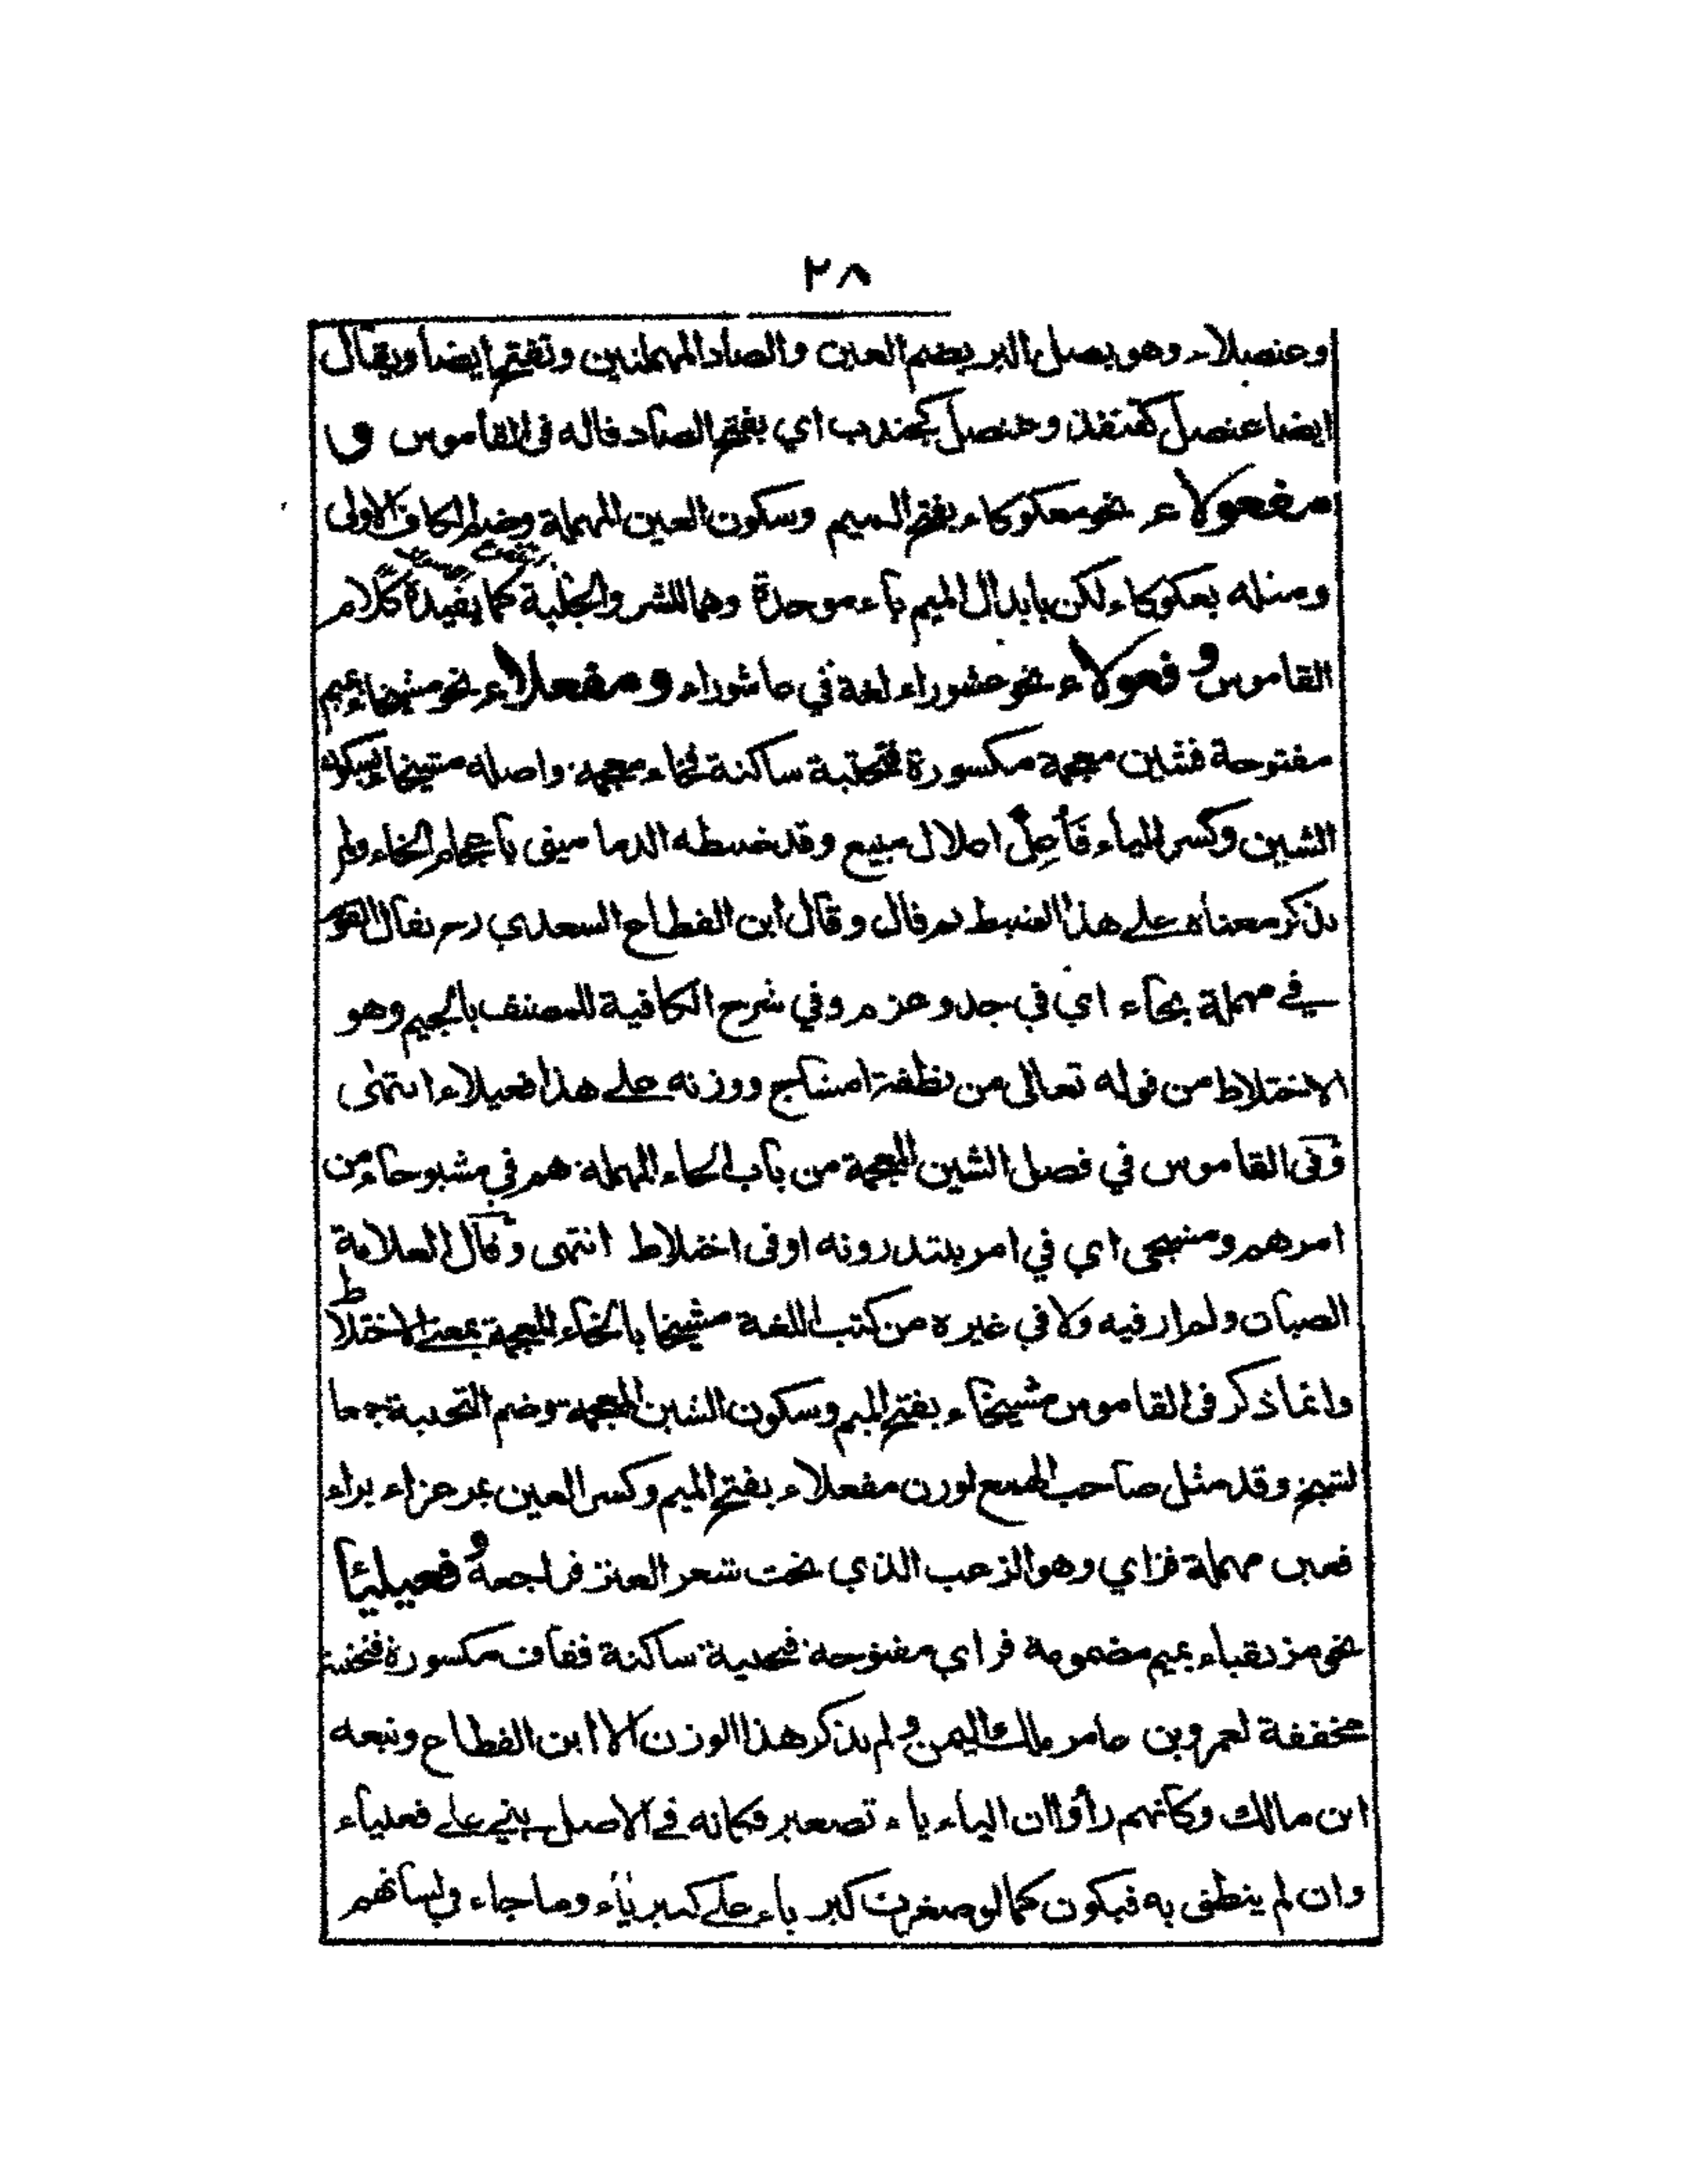 ٢٨
وعنصلاء وهو بصل البر بضم العين والصاد المهملتين وتفتح ايضا ويقال
ايضا عنصل كقنفذ وعنصل كجندب اي بفتح الصاد قاله فى القاموس و
مفعولاء نحو معكوكاء بفتح الميم وسكون العين المهملة وضم الكاف الاولى
ومثله بعكوكاء لكن بابدال الميم باء موحدة وهما للشر والجلبة كما يفيده كلام
القاموس وفعولاء نحو عشوراء لغة في عاشوراء ومفعلاء نحو مشيخاء بميم
مفتوحة فشين معجمة مكسورة فتحتية ساكنة فخاء معجمة واصله مشيخاء بسكون
الشين وكسر الياء فأعل اعلال مبيع وقد ضبطه الدماميني باعجام الخاء ولم
يذكر معناه على هذا الضبط ثم قال وقال ابن القطاع السعدي رح يقال القوم
في مهملة بحاء اي في جد وعزم وفي شرح الكافية للمصنف بالجيم وهو
الاختلاط من قوله تعالى من نطفة امشاج ووزنه على هذا فعيلاء انتهى
وفى القاموس في فصل الشين المعجمة من باب الحاء المهملة هم في مشيوحاء من
امرهم ومشيحى اي في امر يبتدرونه اوفى اختلاط انتهى وقال العلامة
الصبان ولم ار فيه ولا في غيره من كتب اللغة مشيخا بالخاء المعجمة بمعنى الاختلاط
وانما ذكر فى القاموس مشيخاء بفتح الميم وسكون الشين المعجمة وضم التحتية جمعا
لشيخ وقد مثل صاحب الهمع لوزن مفعلاء بفتح الميم وكسر العين بمرعزاء براء
فعين مهملة فزاي وهو الزغب الذي تحت شعر العنز فراجعه وفعيليا
نحو مزيقياء بميم مضمومة فزاي مفتوحة فتحتية ساكنة فقاف مكسورة فتحتية
مخففة لعمرو بن عامر ملك اليمن ولم يذكر هذا الوزن الا ابن القطاع وتبعه
ابن مالك وكانهم رأوا ان الياء ياء تصغير فكانه في الاصل بني على فعلياء
وان لم ينطق به فيكون كما لو صغرت كبرياء على كبيرياء وما جاء في لسانهم